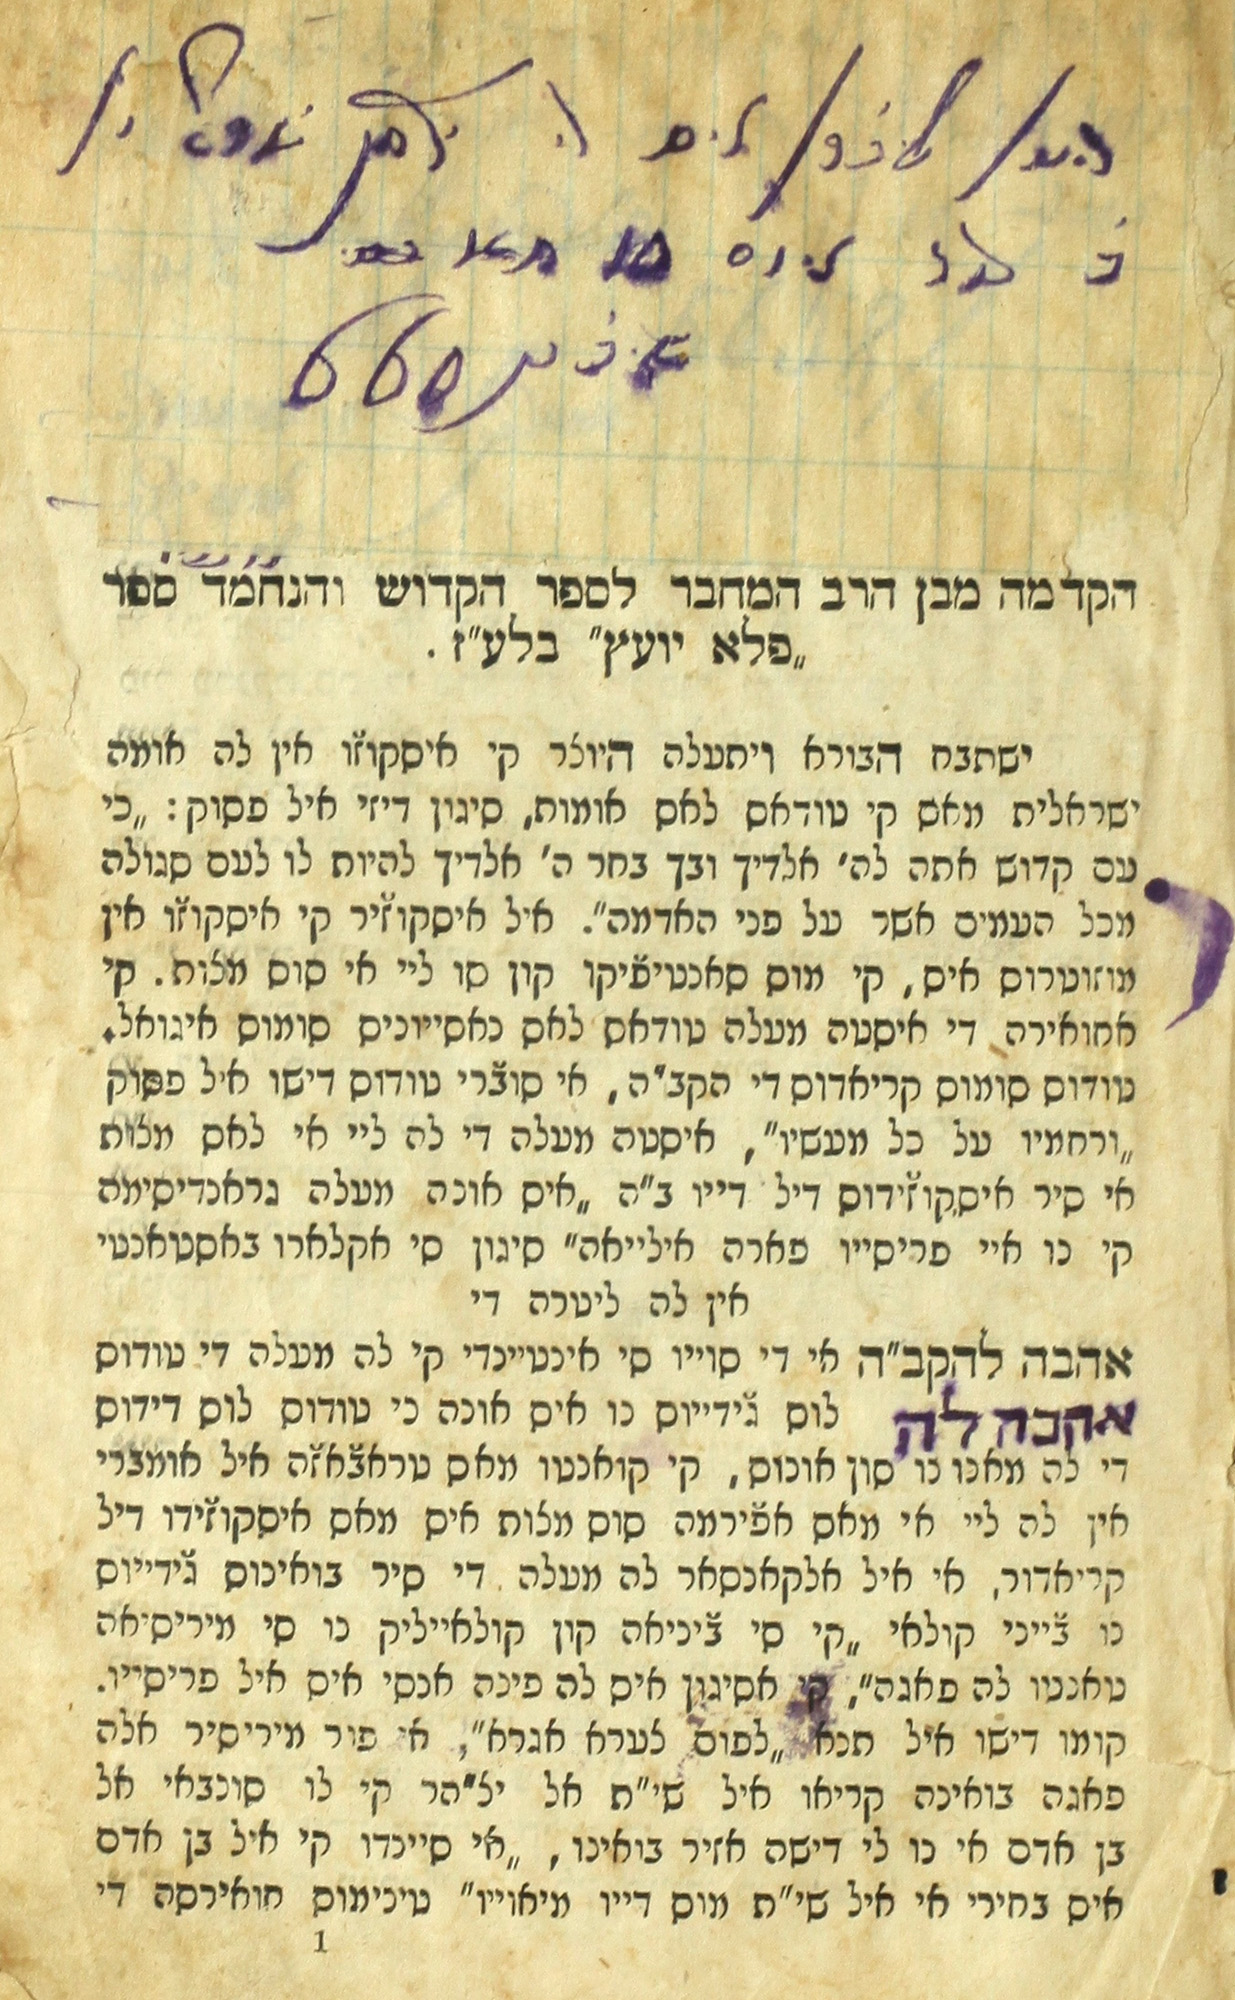 הקדמה מבן הרב המחבר לספר הקדוש והנחמד ספר
„פלא יועץ” בלע״ז.
ישתבח הבורא ויתעלה היוצר קי איסקוז̆ו אין לה אומה
ישראלית מאס קי טודאס לאס אומות, סיגון דיזי איל פסוק: „כי
עם קדוש אתה לה׳ אלדיך ובך בחר ה׳ אלדיך להיות לו לעם סגולה
מכל העמים אשר על פני האדמה”. איל איסקוז̆יר קי איסקוז̆ו אין
מוזוטרוס איס, קי מוס סאנטיפ̆יקו קון סו ליי אי סוס מצות. קי
אחואירה די איסטה מעלה טודאס לאס נאסייוניס סומוס איגואל.
טודוס סומוס קריאדוס די הקב״ה, אי סוב̆רי טודוס דישו איל פסוק
„ורחמיו על כל מעשיו”, איסטה מעלה די לה ליי אי לאס מצות
אי סיר איסקוז̆ידוס דיל דייו ב״ה „איס אונה מעלה גראנדיסימה
קי נו איי פריסייו פארה אילייאה” סיגון סי אקלארו באסטאנטי
אין לה ליטרה די
אהבה להקב״ה אי די סוייו סי אינטיינדי קי לה מעלה די טודוס
אהבה לה לוס ג̆ידייוס נו איס אונה כי טודוס לוס דידוס
די לה מאנו נו סון אונוס, קי קואנטו מאס טראב̆אז̆ה איל אומברי
אין לה ליי אי מאס אפ̆ירמה סוס מצות איס מאס איסקוז̆ידו דיל
קריאדור, אי איל אלקאנסאר לה מעלה די סיר בואינוס ג̆ידייוס
נו ב̆ייני קולאי „קי סי ב̆יניאה קון קולאייליק נו סי מיריסיאה
טאנטו לה פאגה”, קי אסיגון איס לה פינה אנסי איס איל פריסייו.
קומו דישו איל תנא „לפום צערא אגרא”, אי פור מיריסיר אלה
פאגה בואינה קריאו איל שי״ת אל יצ״הר קי לו סונבאי אל
בן אדם אי נו לי דישה אזיר בואינו, „אי סיינדו קי איל בן אדם
איס בחירי אי איל שי״ת מוס דייו מיאוייו” טינימוס חואירסה די
1